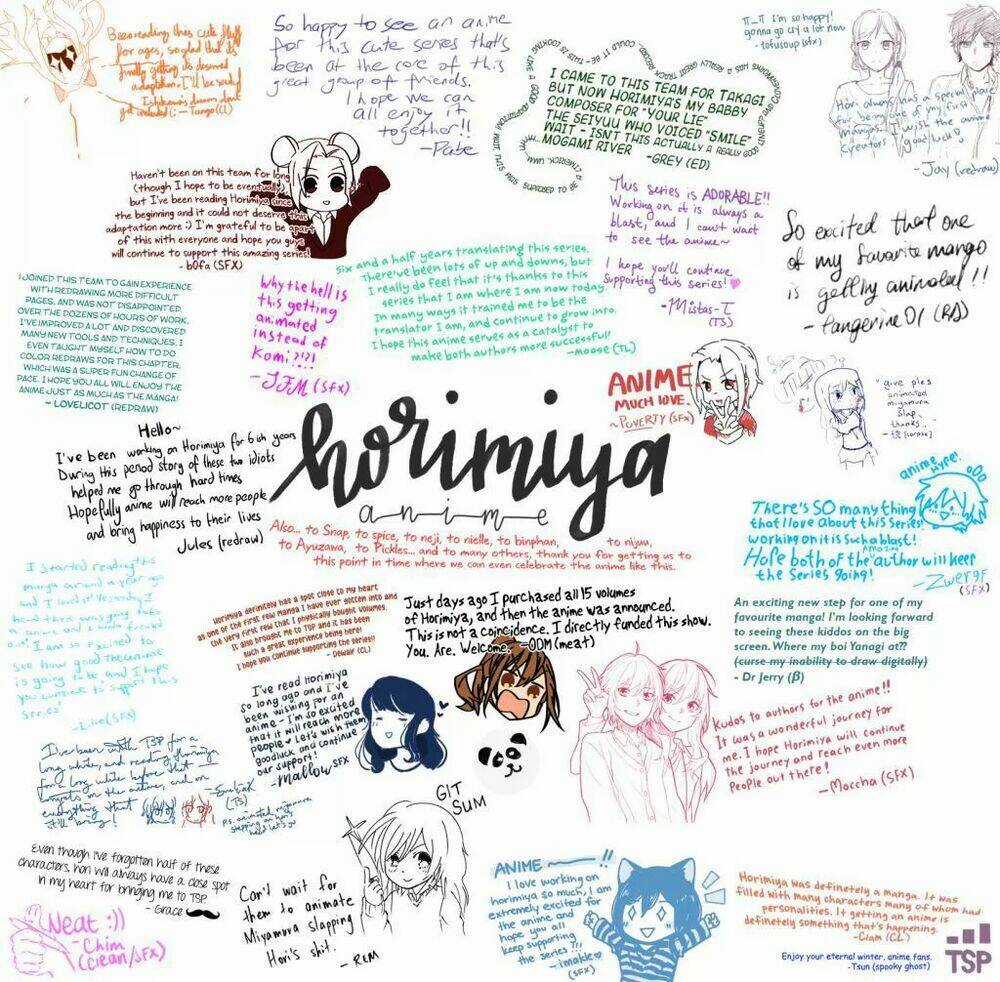 Been reading this cute fluff
for ages, so glad that it's
finally getting its deserved
adaptation. I'll be sad if
Ishikawa's dream don't
get included (: - Tango (CL)
So happy to see an anime
for this cute series that's
been at the core of this
great group of friends.
I hope we can
all enjoy it
together!!
- Pabe
I CAME TO THIS TEAM FOR TAKAGI
BUT NOW HORIMIYA'S MY BABBY
COMPOSER FOR "YOUR LIE"
THE SEIYUU WHO VOICED "SMILE"
WAIT - ISN'T THIS ACTUALLY A REALLY GOOD
MOGAMI RIVER -GREY (ED)
π_π I'm so happy!
gonna go cry a lot now
- tofusoup (sfx)
Hori always has a special place
for being one of my first
mangas. I wish the anime
creators good luck
- Jay (redraw)
Haven't been on this team for long
(though I hope to be eventually)
but I've been reading Horimiya since
the beginning and it could not deserve this
adaptation more :) I'm grateful to be apart
of this with everyone and hope you guys
will continue to support this amazing series!
- b0fa (SFX)
This series is ADORABLE!!
Working on it is always a
blast, and I can't wait
to see the anime~
I hope you'll continue
supporting this series!
- Mistas-T
(TS)
So excited that one
of my favorite mango
is getting animated!!
- tangerine01 (RD)
I JOINED THIS TEAM TO GAIN EXPERIENCE
WITH REDRAWING MORE DIFFICULT
PAGES, AND WAS NOT DISAPPOINTED.
OVER THE DOZENS OF HOURS OF WORK,
I'VE IMPROVED A LOT AND DISCOVERED
MANY NEW TOOLS AND TECHNIQUES. I
EVEN TAUGHT MYSELF HOW TO DO
COLOR REDRAWS FOR THIS CHAPTER,
WHICH WAS A SUPER FUN CHANGE OF
PACE. I HOPE YOU ALL WILL ENJOY THE
ANIME JUST AS MUCH AS THE MANGA!
- LOVELICOT (REDRAW)
Why the hell is
this getting
animated
instead of
Komi?!?!
- JFM (SFX)
Six and a half years translating this series.
There've been lots of up and downs, but
I really do feel that it's thanks to this
series that I am where I am now today.
In many ways it trained me to be the
translator I am, and continue to grow into.
I hope this anime serves as a catalyst to
make both authors more successful!
-Moose (TL)
ANIME
MUCH LOVE.
~POVERTY (SFX)
"give pics
animated
miyamura
slap,
thanks."
Hello~
I've been working on Horimiya for 6 ish years
During this period story of these two idiots
helped me go through hard times
Hopefully anime will reach more people
and bring happiness to their lives
Jules (redraw)
horimiya
anime
Also... to Snap, to spice, to neji, to nielle, to binphan, to nijuu,
to Ayuzawa, to Pickles... and to many others, thank you for getting us to
this point in time where we can even celebrate the anime like this.
anime hype! oOo
There's SO many thing
that I love about this series!
working on it is such a blast!
Hope both of the amazing author will keep
the series going!
- Zwergf
(SFX)
I started reading this
manga around a year ago
and I loved it! Yesterday I
I am so excited to
see how good the anime
is going to be and I hope
you continue to support this
series
- Live (SFX)
Horimiya definitely has a spot close to my heart
as one of the first few manga I have ever gotten into and
the very first few that I physically bought volumes.
It also brought me to TSP and it has been
such a great experience being here!
I hope you continue supporting the series!!
- Dewair (CL)
Just days ago I purchased all 15 volumes
of Horimiya, and then the anime was announced.
This is not a coincidence. I directly funded this show.
You. Are. Welcome. -ODM (meat)
An exciting new step for one of my
favourite manga! I'm looking forward
to seeing these kiddos on the big
screen. Where my boi Yanagi at??
(curse my inability to draw digitally)
- Dr Jerry (β)
I've read Horimiya
so long ago and I've
been wishing for an
anime - I'm so excited
that it will reach more
people ♥ Let's wish them
goodluck and continue
our support!
- Mallow SFX
Kudos to authors for the anime!!
It was a wonderful journey for
me. I hope Horimiya will continue
the journey and reach even more
People out there!
- Moccha (SFX)
I've been with TSP for a
long while, and reading Horimiya
for a long while before that. I
everything that
still bring!
(TS)
p.s. animated miyamura
stepping on hori
GIT
SUM
Even though I've forgotten half of these
characters, hori will always have a close spot
in my heart for bringing me to TSP
- Grace
Neat :))
- Chim
(clean/SFX)
Can't wait for
them to animate
Miyamura slapping
Hori's shit.
- RLM
ANIME ~ !!
I love working on
horimiya so much, I am
extremely excited for
the anime and
hope you all
keep supporting
the series!!!
- imakle
(SFX)
Horimiya was definetely a manga. It was
filled with many characters many of whom had
personalities. It getting an anime is
definetely something that's happening.
- Clam (CL)
Enjoy your eternal winter, anime fans.
-Tsun (spooky ghost)
TSP